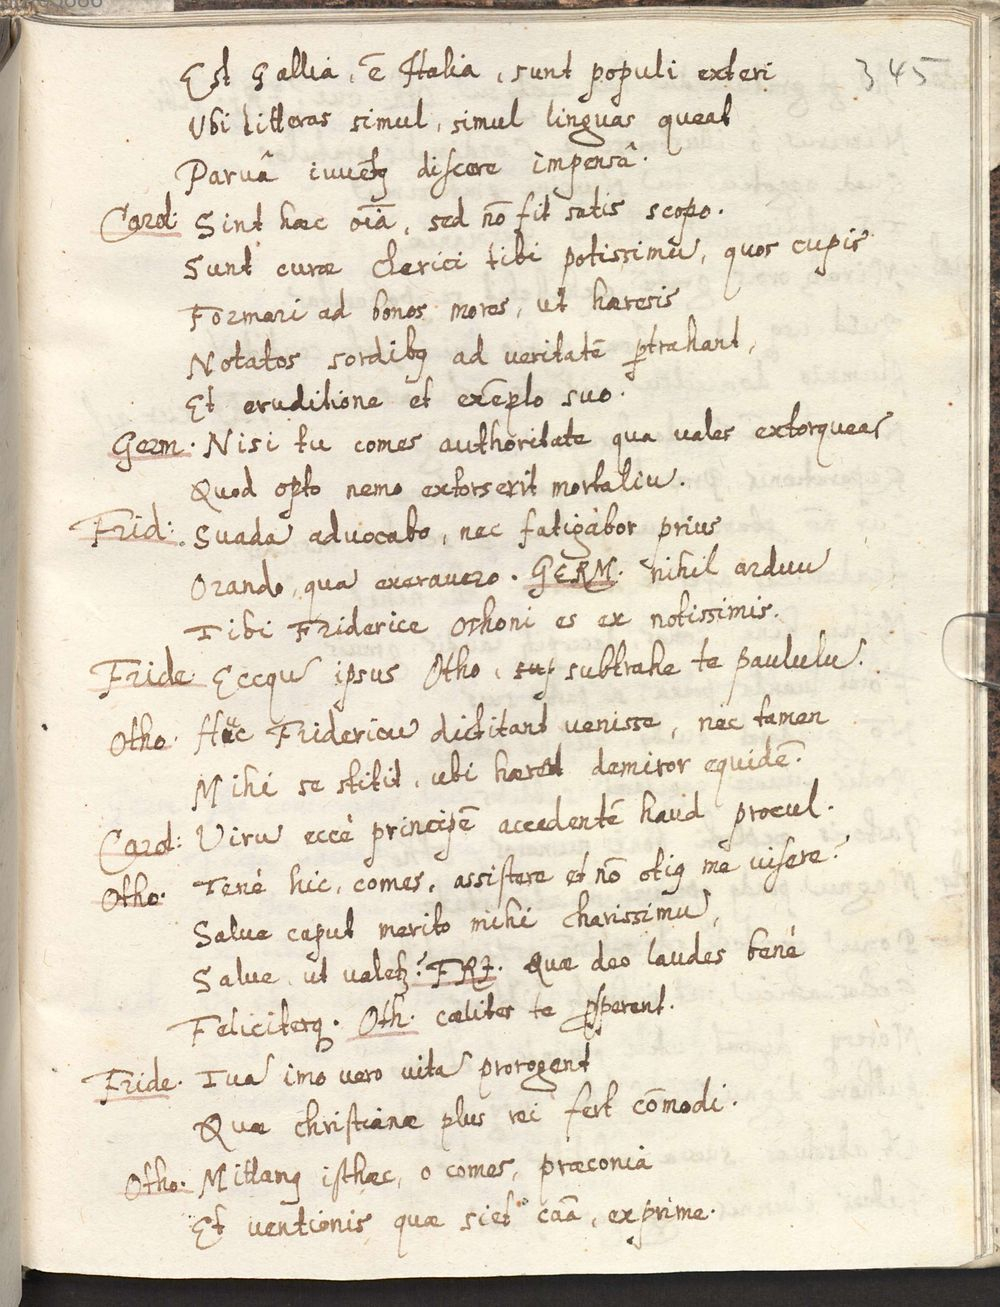 345
Est Gallia, ē Italia, sunt populi exteri
Ubi litteras simul, simul linguas queat
Parvâ iuuētꝫ discere impensâ.
Carol: Sint haec oīa, sed nō fit satis scopo.
Sunt curae clerici tibi potissimū, quos cupis
Formari ad bonos mores, ut haeresis
Notatos sordibꝫ ad veritatē ꝑtrahant,
Et eruditione et exēplo suo.
Germ. Nisi tu comes authoritate qua vales extorqueas
Quod opto nemo extorserit mortaliū.
Frid: Suadā advocabo, nec fatigabor prius
Orando, quā exoravero. GERM. nihil arduū
Tibi Friderice Othoni es ex notissimis.
Fride Eccqū ipsus Otho, subtrahe te paululū.
Otho. Hūc Fridericū dictitant venisse, nec tamen
Mihi se stitit, ubi haeret demiror equidē.
Carol: Virū eccè principē accedentē haud procul.
Otho. Tenè hic, comes, assistere et nō otiꝰ mē visere?
Salve caput merito mihi charissimū,
Salve, ut valetꝫ? FRI. Quae deo laudes benè
Feliciterqꝫ. Oth. caelites te ꝓsperent.
Fride. Tuā imo vero vitā prorogent
Quae christianae plus rei fert cōmodi.
Otho. Mittantꝰ isthaec, o comes, praeconia
Et ventionis quae siet caā, exprime.